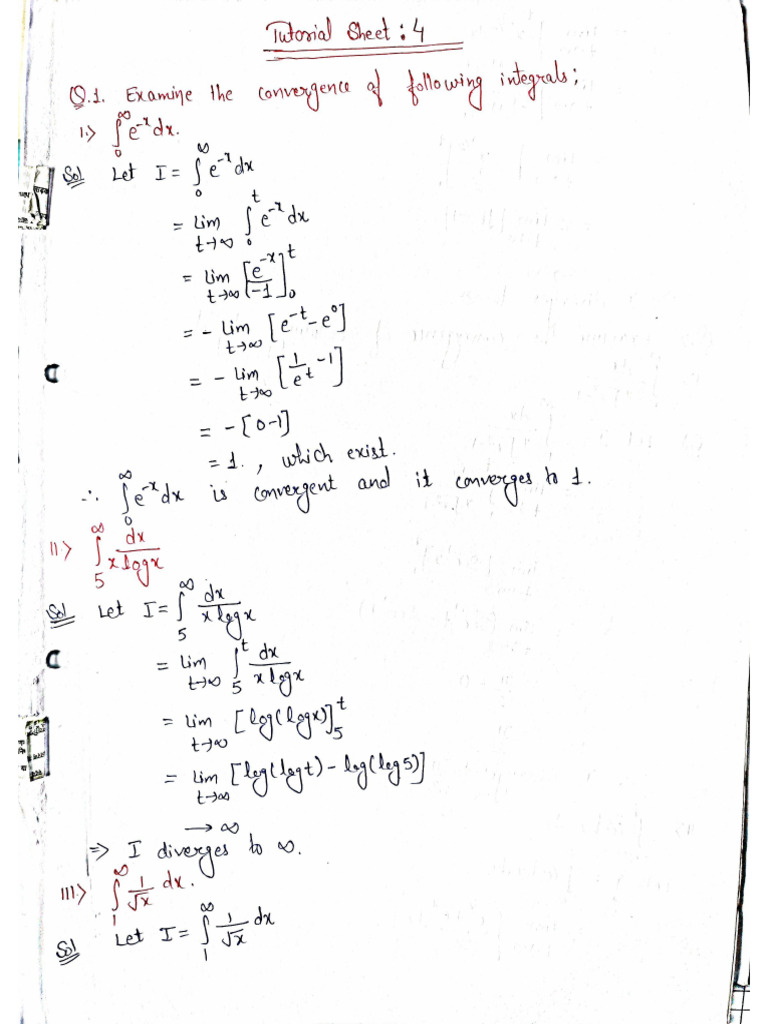 Tutorial Sheet : 4
Q.1. Examine the convergence of following integrals;
I.> ∫₀^∞ e^-x dx.
Sol Let I = ∫₀^∞ e^-x dx
= Lim t→∞ ∫₀^t e^-x dx
= Lim t→∞ [e^-x / -1]₀^t
= - Lim t→∞ [e^-t - e^0]
= - Lim t→∞ [1/e^t - 1]
= - [0-1]
= 1. , which exist.
∴ ∫₀^∞ e^-x dx is convergent and it converges to 1.
II> ∫₅^∞ dx / x logx
Sol Let I = ∫₅^∞ dx / x logx
= Lim t→∞ ∫₅^t dx / x logx
= Lim t→∞ [log(logx)]₅^t
= Lim t→∞ [log(logt) - log(log5)]
→ ∞
⇒ I diverges to ∞.
III.> ∫₁^∞ 1/√x dx.
Sol Let I = ∫₁^∞ 1/√x dx